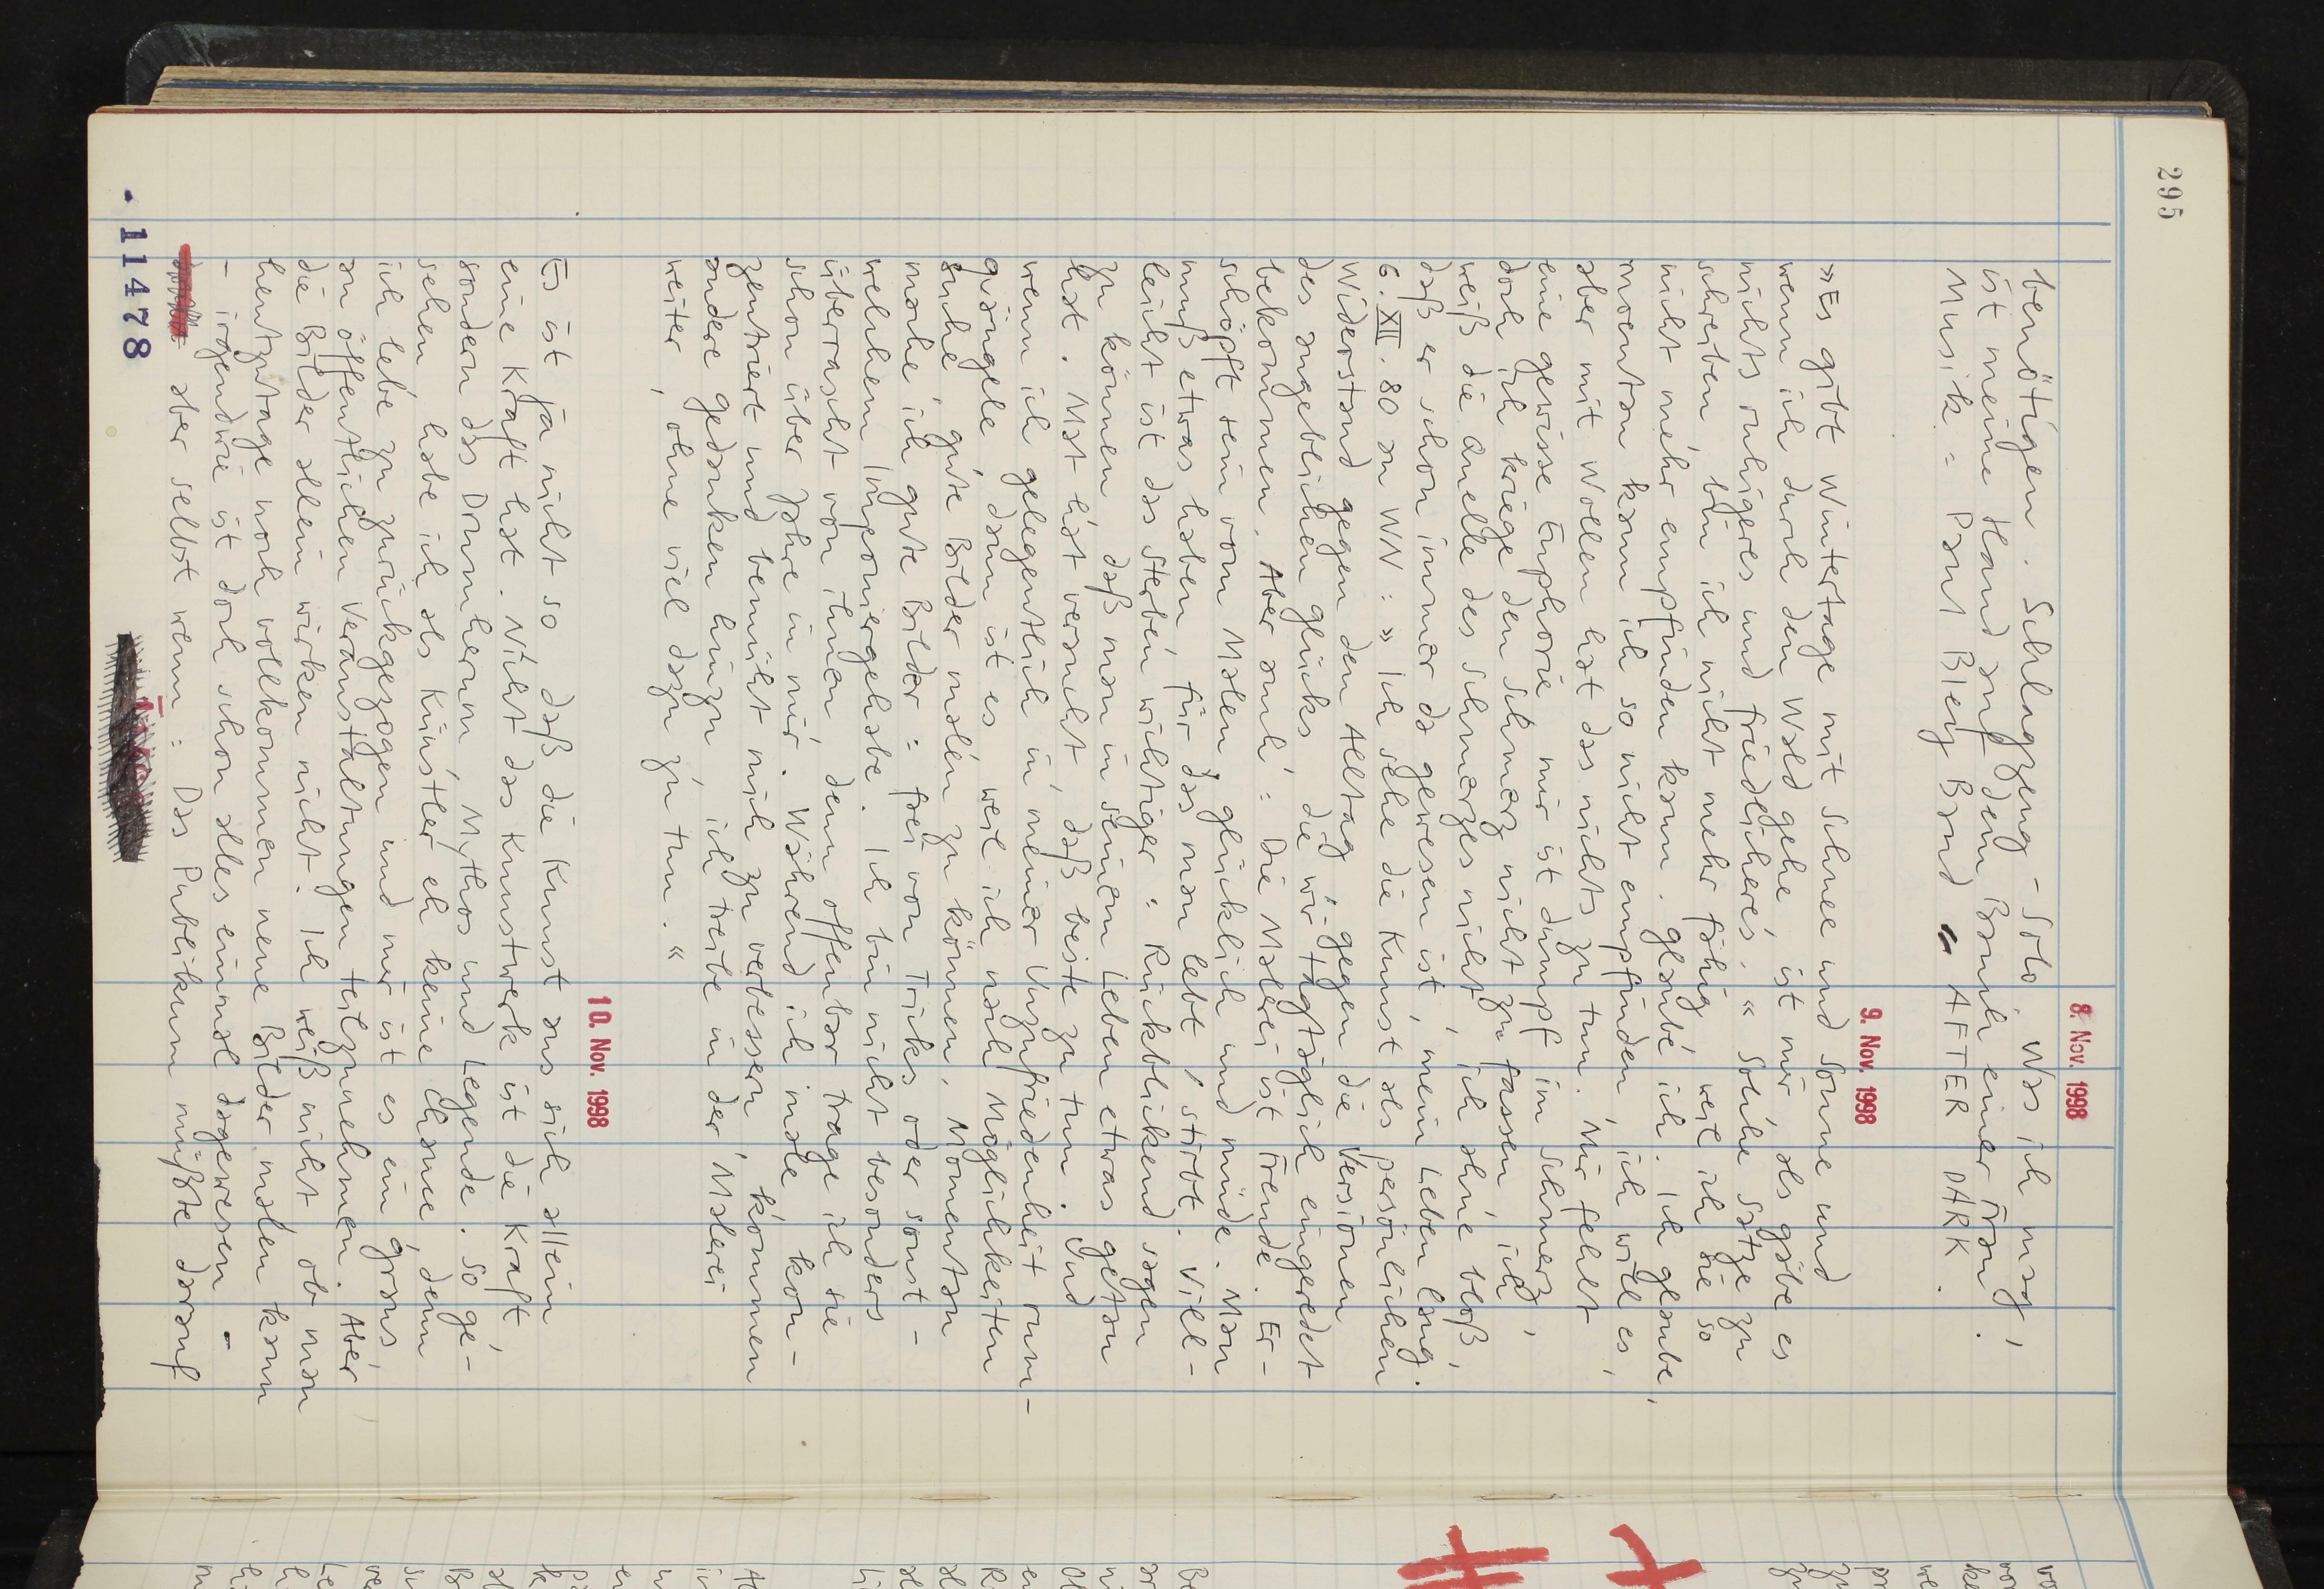 295
8. Nov. 1998
benötigen. Schlagzeug-Solo. Was ich mag,
ist meine Hand auf dem Bauch einer Frau.
Musik: Paul Bley Band AFTER DARK.
9. Nov. 1998
»Es gibt Wintertage mit Schnee und Sonne und
wenn ich durch den Wald gehe, ist mir, als gäbe es
nichts ruhigeres und friedlicheres.« Solche Sätze zu
schreiben, bin ich nicht mehr fähig, weil ich sie so
nicht mehr empfinden kann. Glaube ich. Ich glaube,
momentan kann ich so nicht empfinden, ich will es,
aber mit Wollen hat das nichts zu tun. Mir fehlt
eine gewisse Euphorie, mir ist dumpf im Schmerz,
doch ich kriege den Schmerz nicht zu fassen, ich
weiß die Quelle des Schmerzes nicht, ich ahne bloß,
daß er schon immer da gewesen ist, mein Leben lang.
6. XII. 80 an WN: »Ich sehe die Kunst als persönlichen
Widerstand gegen den Alltag, gegen die Versionen
des angeblichen Glücks, die wir tagtäglich eingeredet
bekommen. Aber auch: Die Malerei ist Freude. Er-
schöpft sein vom Malen, glücklich und müde. Man
muß etwas haben, für das man lebt / stirbt. Viel-
leicht ist das Sterben wichtiger: Rückblickend sagen
zu können, daß man in seinem Leben etwas getan
hat. Mat hat versucht, daß beste zu tun. Und
wenn ich gelegentlich in meiner Unzufriedenheit rum-
quängele, dann ist es, weil ich nach Möglichkeiten
suche, gute Bilder malen zu können. Momentan
mache ich gute Bilder: frei von Tricks oder sonst-
welchem Imponiergehabe. Ich bin nicht besonders
überrascht von ihnen, denn offenbar trage ich sie
schon über Jahre in mir. Während ich male, kon-
zentriert und bemüht mich zu verbessern, kommen
andere Gedanken hinzu, ich treibe in der Malerei
weiter, ohne viel dazu zu tun.«
10. Nov. 1998
Es ist ja nicht so, daß die Kunst aus sich allein
eine Kraft hat. Nicht das Kunstwerk ist die Kraft,
sondern das Drumherum, Mythos und Legende. So ge-
sehen, habe ich als Künstler eh keine Chance, denn
ich lebe zu zurückgezogen und mir ist es ein Graus,
an öffentlichen Veranstaltungen teilzunehmen. Aber
die Bilder allein wirken nicht. Ich weiß nicht, ob man
heutzutage noch vollkommen neue Bilder malen kann
- irgendwie ist doch schon alles einmal dagewesen -
aber selbst wenn: Das Publikum müßte darauf
11478